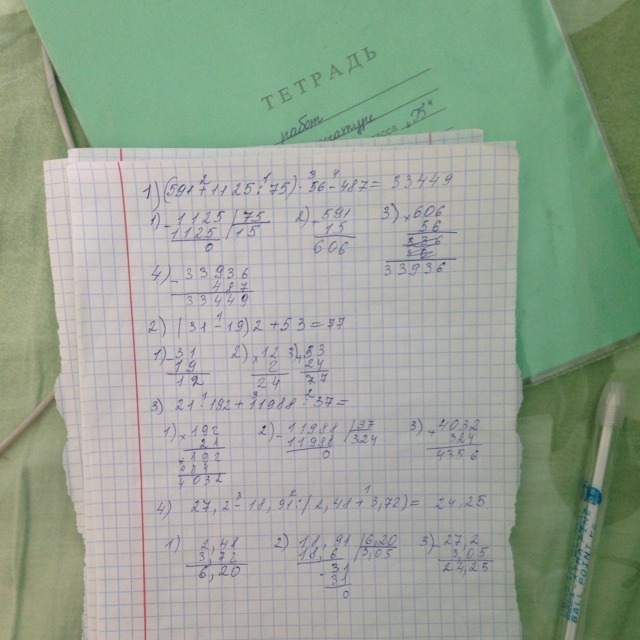 ТЕТРАДЬ
работ
"Б"
1) (591+1125:75)·56-487=33449
1) 1125 | 75 2) 591 3) 606
1125 | 15 15 56
0 606
33936
4) 33936
487
33449
2) (31-19)2+53=77
1) 31 2) 12 3) 53
19 2 24
12 24 77
3) 21·192+11988:37=
1) 192 2) 11988 | 37 3) 4032
21 11988 | 324 324
192 0 4356
4032
4) 27,2-18,91:(2,48+3,72)=24,25
1) 2,48 2) 18,91 | 6,20 3) 27,2
3,72 18,6 | 3,05 3,05
6,20 31 24,25
31
0